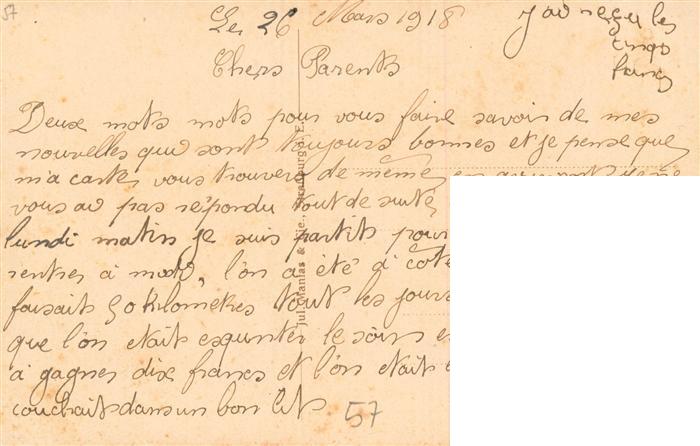 57
Le 26 Mars 1918
J'ai reçu les
cinqs
francs
Chers Parents
Deux mots mots pour vous faire savoir de mes
nouvelles qui sont toujours bonnes et je pense que
m'a carte vous trouvera de même
vous ai pas répondu tout de suite
lundi matin je suis partit pour
rentrer à l'on a été à coté
faisait 50 kilometres tout les jours
que l'on etait esquinter le soirs et
à gagner dix francs et l'on etait
couchait dans un bon lit
57
Jul. Manias & Cie., Strasbourg i. E.